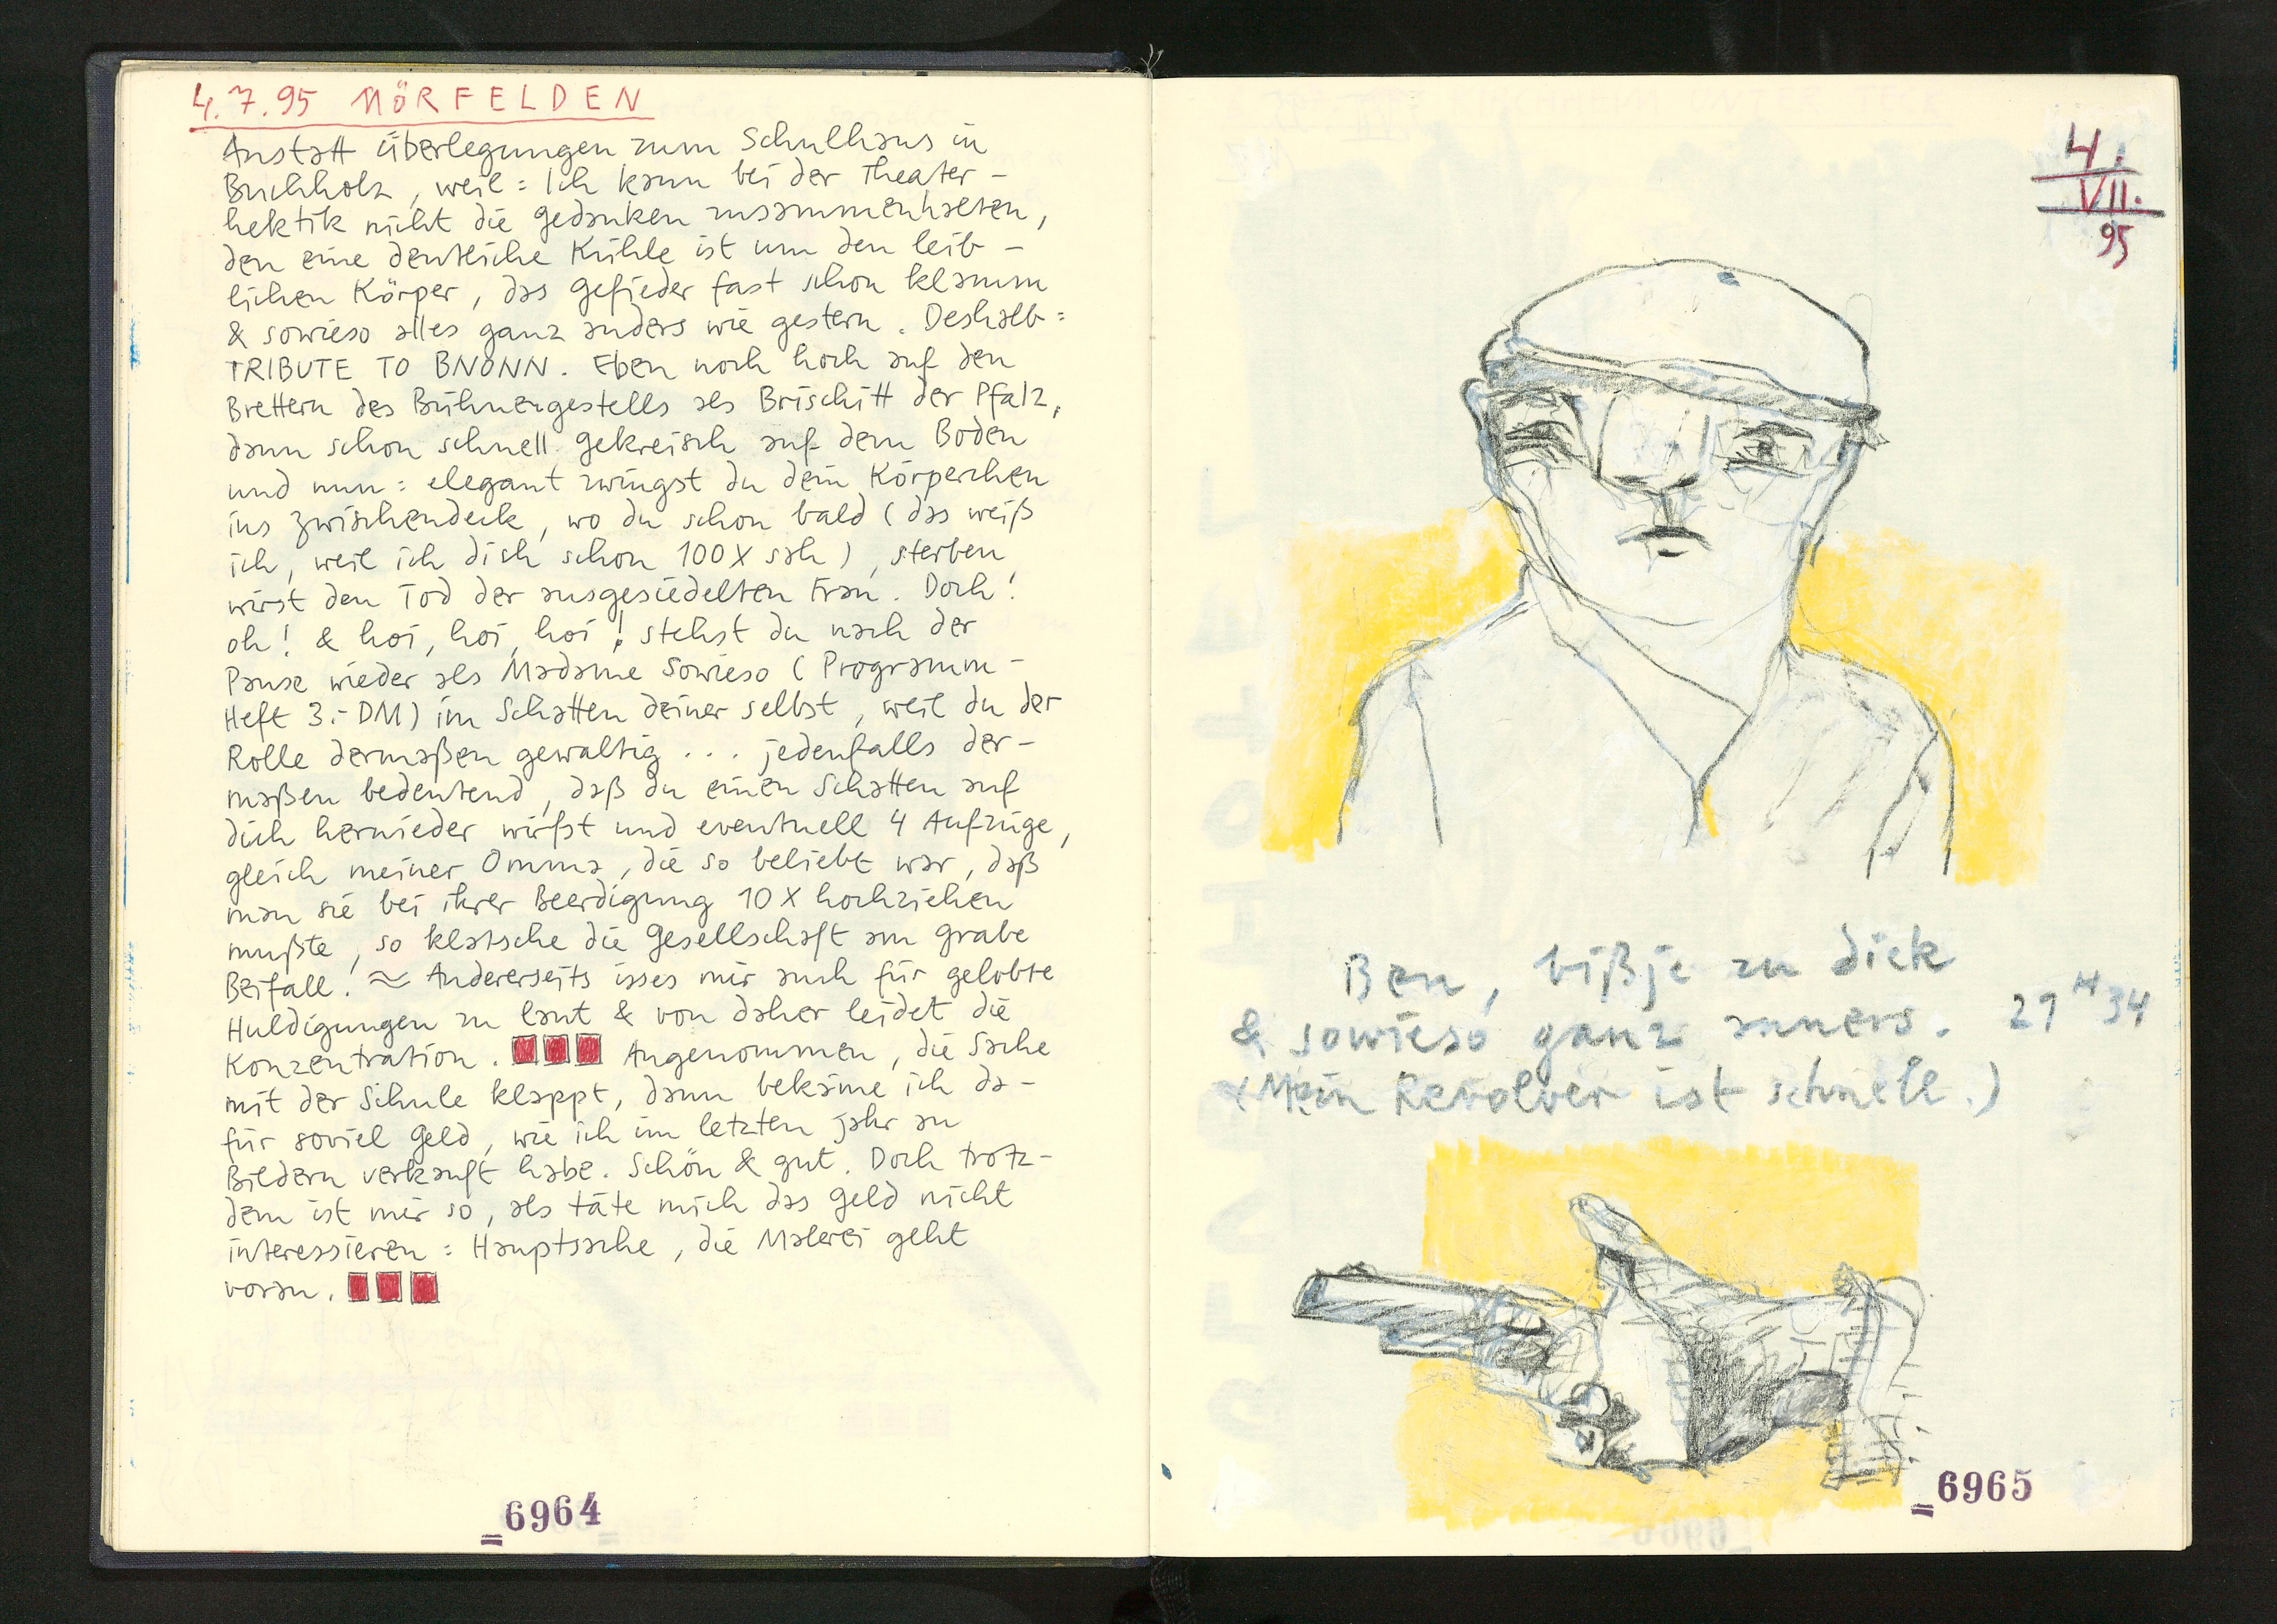 4.7.95 MÖRFELDEN
Anstatt überlegungen zum Schulhaus in
Buchholz, weil: Ich kann bei der Theater-
hektik nicht die gedanken zusammenhalten,
den eine deutliche Kühle ist um den leib-
lichen Körper, das gefieder fast schon klamm
& sowieso alles ganz anders wie gestern. Deshalb:
TRIBUTE TO BNONN. Eben noch hoch auf den
Brettern des Bühnengestells als Brischitt der Pfalz,
dann schon schnell gekreisch auf dem Boden
und nun: elegant zwingst du dein Körperchen
ins zwischendeck, wo du schon bald (das weiß
ich, weil ich dich schon 100X sah), sterben
wirst den Tod der ausgesiedelten Frau. Doch!
oh! & hoi, hoi, hoi! stehst du nach der
Pause wieder als Madame Sowieso (Programm-
Heft 3.- DM) im Schatten deiner selbst, weil du der
Rolle dermaßen gewaltig ... jedenfalls der-
maßen bedeutend, daß du einen Schatten auf
dich hernieder wirfst und eventuell 4 Aufzüge,
gleich meiner Omma, die so beliebt war, daß
man sie bei ihrer Beerdigung 10X hochziehen
mußte, so klatsche die gesellschaft am grabe
Beifall! ≈ Andererseits isses mir auch für gelobte
Huldigungen zu laut & von daher leidet die
Konzentration. Angenommen, die Sache
mit der Schule klappt, dann bekäme ich da-
für soviel geld, wie ich im letzten jahr an
Bildern verkauft habe. Schön & gut. Doch trotz-
dem ist mir so, als täte mich das geld nicht
interessieren: Hauptsache, die Malerei geht
voran.
6964
4.
VII.
95
Ben, bißje zu dick
& sowieso ganz anners. 21 H 34
(Mein Revolver ist schnell.)
6965